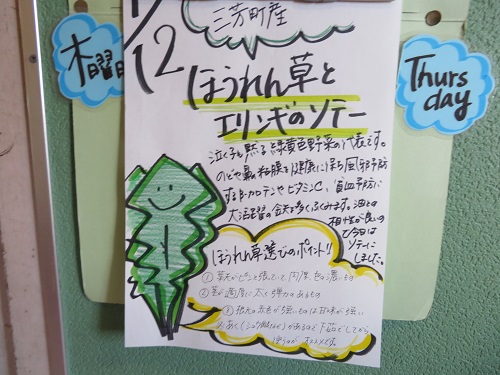 12
三芳町産
木曜日
Thurs
day
ほうれん草と
エリンギのソテー
泣く子も黙る緑黄色野菜の代表です。
のどや鼻の粘膜を健康に保ち風邪予防
するβ-カロテンやビタミンC、貧血予防に
大活躍の鉄も多くふくみます。油との
相性が良いの
で今日は
ソテーに
しました。
ほうれん草選びのポイント!!
① 葉先がピンと張っていて肉厚 色の濃いもの
② 茎が適度に太く弾力のあるもの
③ 根元の赤色が強いものは甘味が強い